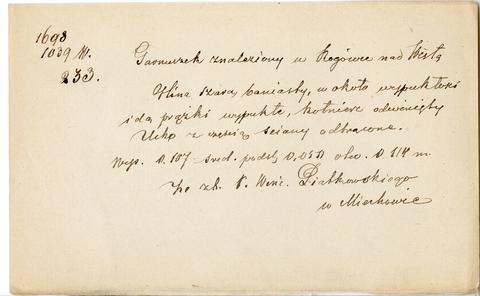 1698
1039 W.
233.
Garnuszek znaleziony w Rogówce nad Wisłą
Glina szara, baniasty, w około wypukłości
idą prążki wypukłe, kołnierz odwinięty
Ucho z częścią ściany odtrącone.
Wys. 0.107 – śred. podst. 0,050 otw. 0.114 m.
Ze zb. P. Winc. Piątkowskiego
w Miechowie